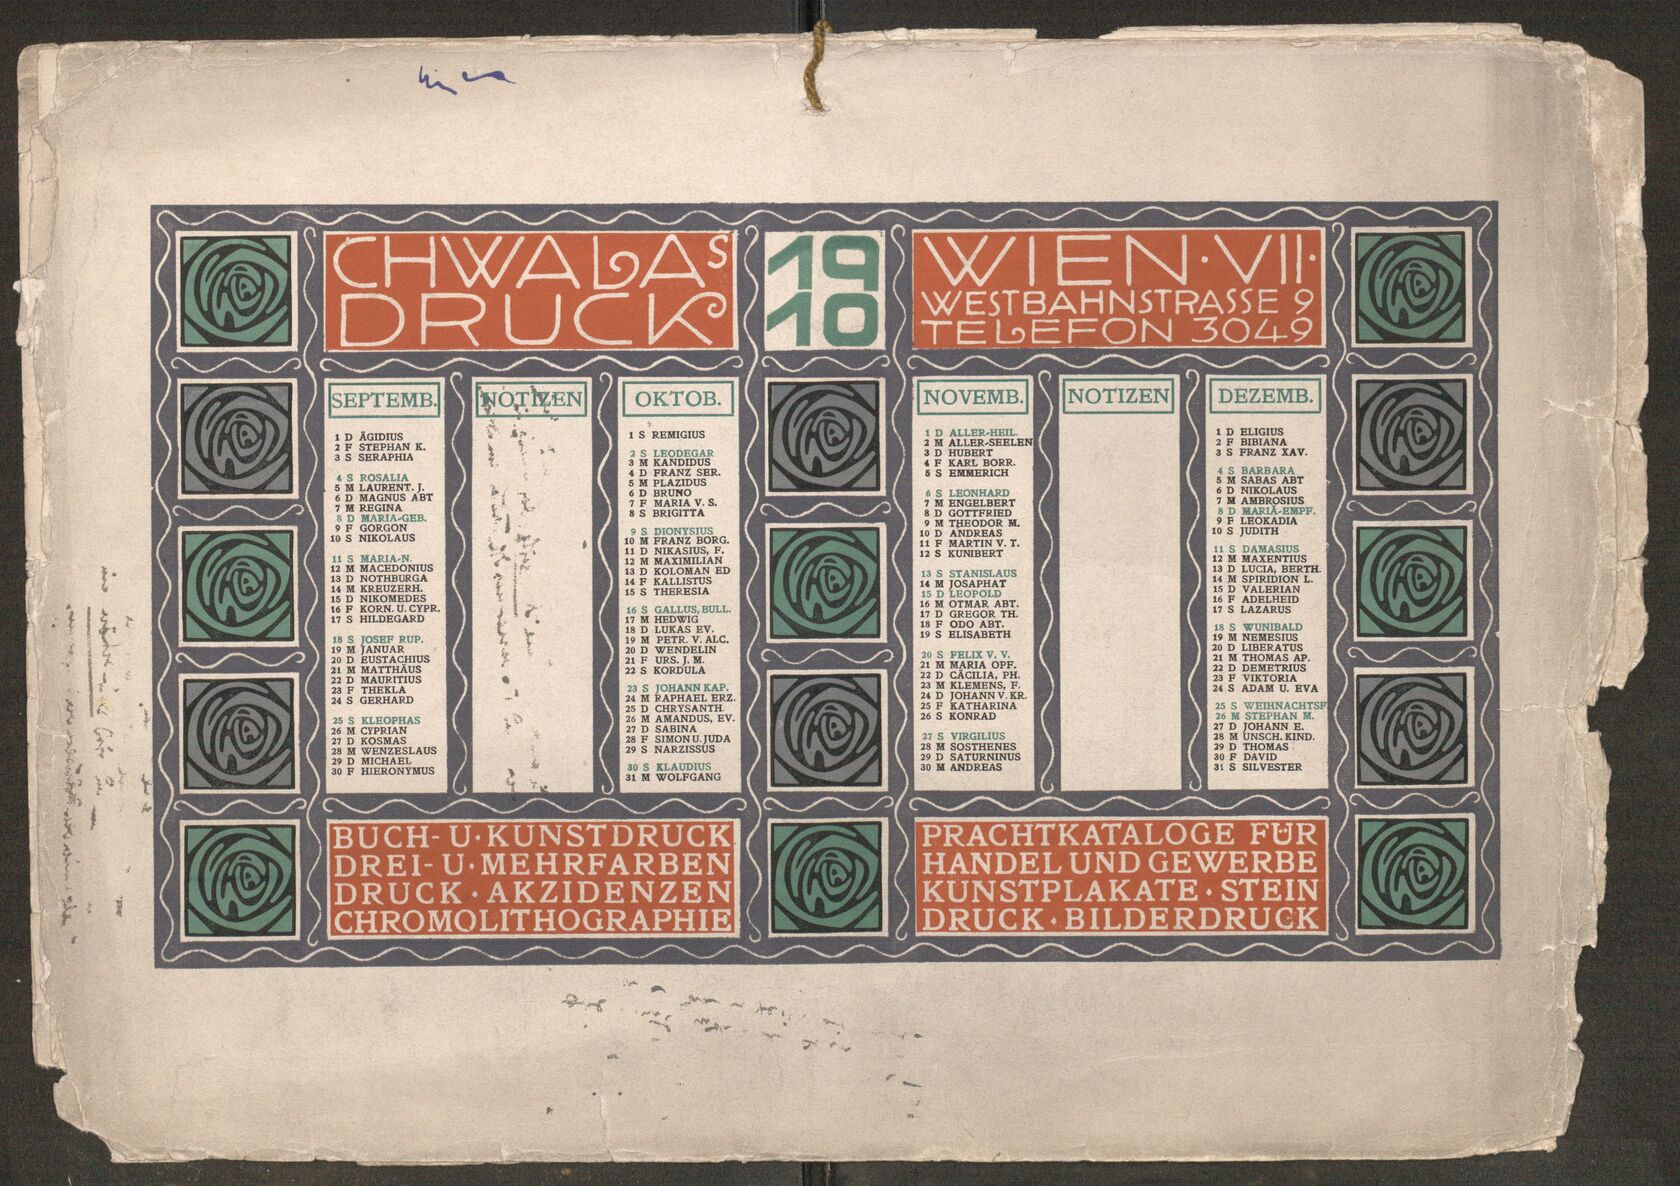 CHWALAS
DRUCK
19
10
WIEN·VII·
WESTBAHNSTRASSE 9
TELEFON 3049
SEPTEMB.
1 D ÄGIDIUS
2 F STEPHAN K.
3 S SERAPHIA
4 S ROSALIA
5 M LAURENT. J.
6 D MAGNUS ABT
7 M REGINA
8 D MARIA-GEB.
9 F GORGON
10 S NIKOLAUS
11 S MARIA-N.
12 M MACEDONIUS
13 D NOTHBURGA
14 M KREUZERH.
15 D NIKOMEDES
16 F KORN. U. CYPR.
17 S HILDEGARD
18 S JOSEF RUP.
19 M JANUAR
20 D EUSTACHIUS
21 M MATTHÄUS
22 D MAURITIUS
23 F THEKLA
24 S GERHARD
25 S KLEOPHAS
26 M CYPRIAN
27 D KOSMAS
28 M WENZESLAUS
29 D MICHAEL
30 F HIERONYMUS
NOTIZEN
OKTOB.
1 S REMIGIUS
2 S LEODEGAR
3 M KANDIDUS
4 D FRANZ SER.
5 M PLAZIDUS
6 D BRUNO
7 F MARIA V. S.
8 S BRIGITTA
9 S DIONYSIUS
10 M FRANZ BORG.
11 D NIKASIUS, F.
12 M MAXIMILIAN
13 D KOLOMAN ED
14 F KALLISTUS
15 S THERESIA
16 S GALLUS, BULL.
17 M HEDWIG
18 D LUKAS EV.
19 M PETR. V. ALC.
20 D WENDELIN
21 F URS. J. M.
22 S KORDULA
23 S JOHANN KAP.
24 M RAPHAEL ERZ.
25 D CHRYSANTH.
26 M AMANDUS, EV.
27 D SABINA
28 F SIMON U. JUDA
29 S NARZISSUS
30 S KLAUDIUS
31 M WOLFGANG
NOVEMB.
1 D ALLER-HEIL.
2 M ALLER-SEELEN
3 D HUBERT
4 F KARL BORR.
5 S EMMERICH
6 S LEONHARD
7 M ENGELBERT
8 D GOTTFRIED
9 M THEODOR M.
10 D ANDREAS
11 F MARTIN V. T.
12 S KUNIBERT
13 S STANISLAUS
14 M JOSAPHAT
15 D LEOPOLD
16 M OTMAR ABT.
17 D GREGOR TH.
18 F ODO ABT.
19 S ELISABETH
20 S FELIX V. V.
21 M MARIA OPF.
22 D CÄCILIA, PH.
23 M KLEMENS, F.
24 D JOHANN V. KR.
25 F KATHARINA
26 S KONRAD
27 S VIRGILIUS
28 M SOSTHENES
29 D SATURNINUS
30 M ANDREAS
NOTIZEN
DEZEMB.
1 D ELIGIUS
2 F BIBIANA
3 S FRANZ XAV.
4 S BARBARA
5 M SABAS ABT
6 D NIKOLAUS
7 M AMBROSIUS
8 D MARIÄ-EMPF.
9 F LEOKADIA
10 S JUDITH
11 S DAMASIUS
12 M MAXENTIUS
13 D LUCIA, BERTH.
14 M SPIRIDION L.
15 D VALERIAN
16 F ADELHEID
17 S LAZARUS
18 S WUNIBALD
19 M NEMESIUS
20 D LIBERATUS
21 M THOMAS AP.
22 D DEMETRIUS
23 F VIKTORIA
24 S ADAM U. EVA
25 S WEIHNACHTSF.
26 M STEPHAN M.
27 D JOHANN E.
28 M UNSCH. KIND.
29 D THOMAS
30 F DAVID
31 S SILVESTER
BUCH- U· KUNSTDRUCK
DREI- U· MEHRFARBEN
DRUCK · AKZIDENZEN
CHROMOLITHOGRAPHIE
PRACHTKATALOGE FÜR
HANDEL UND GEWERBE
KUNSTPLAKATE · STEIN
DRUCK · BILDERDRUCK